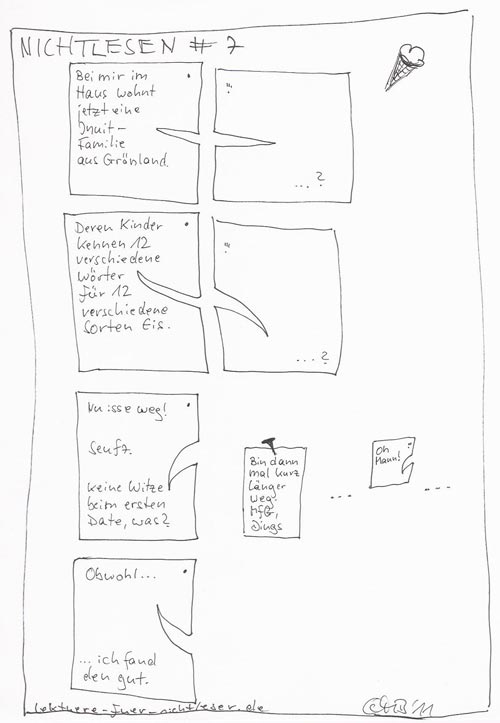 NICHTLESEN # 7
Bei mir im
Haus wohnt
jetzt eine
Inuit-
Familie
aus Grönland.
...?
Deren Kinder
kennen 12
verschiedene
Wörter
für 12
verschiedene
Sorten Eis.
...?
Nu isse weg!
Seufz.
keine Witze
beim ersten
Date, was?
Bin dann
mal kurz
länger
weg.
MfG,
Dings
...
Oh
Mann!
...
Obwohl...
...ich fand
den gut.
lektuere-fuer-nichtleser.de